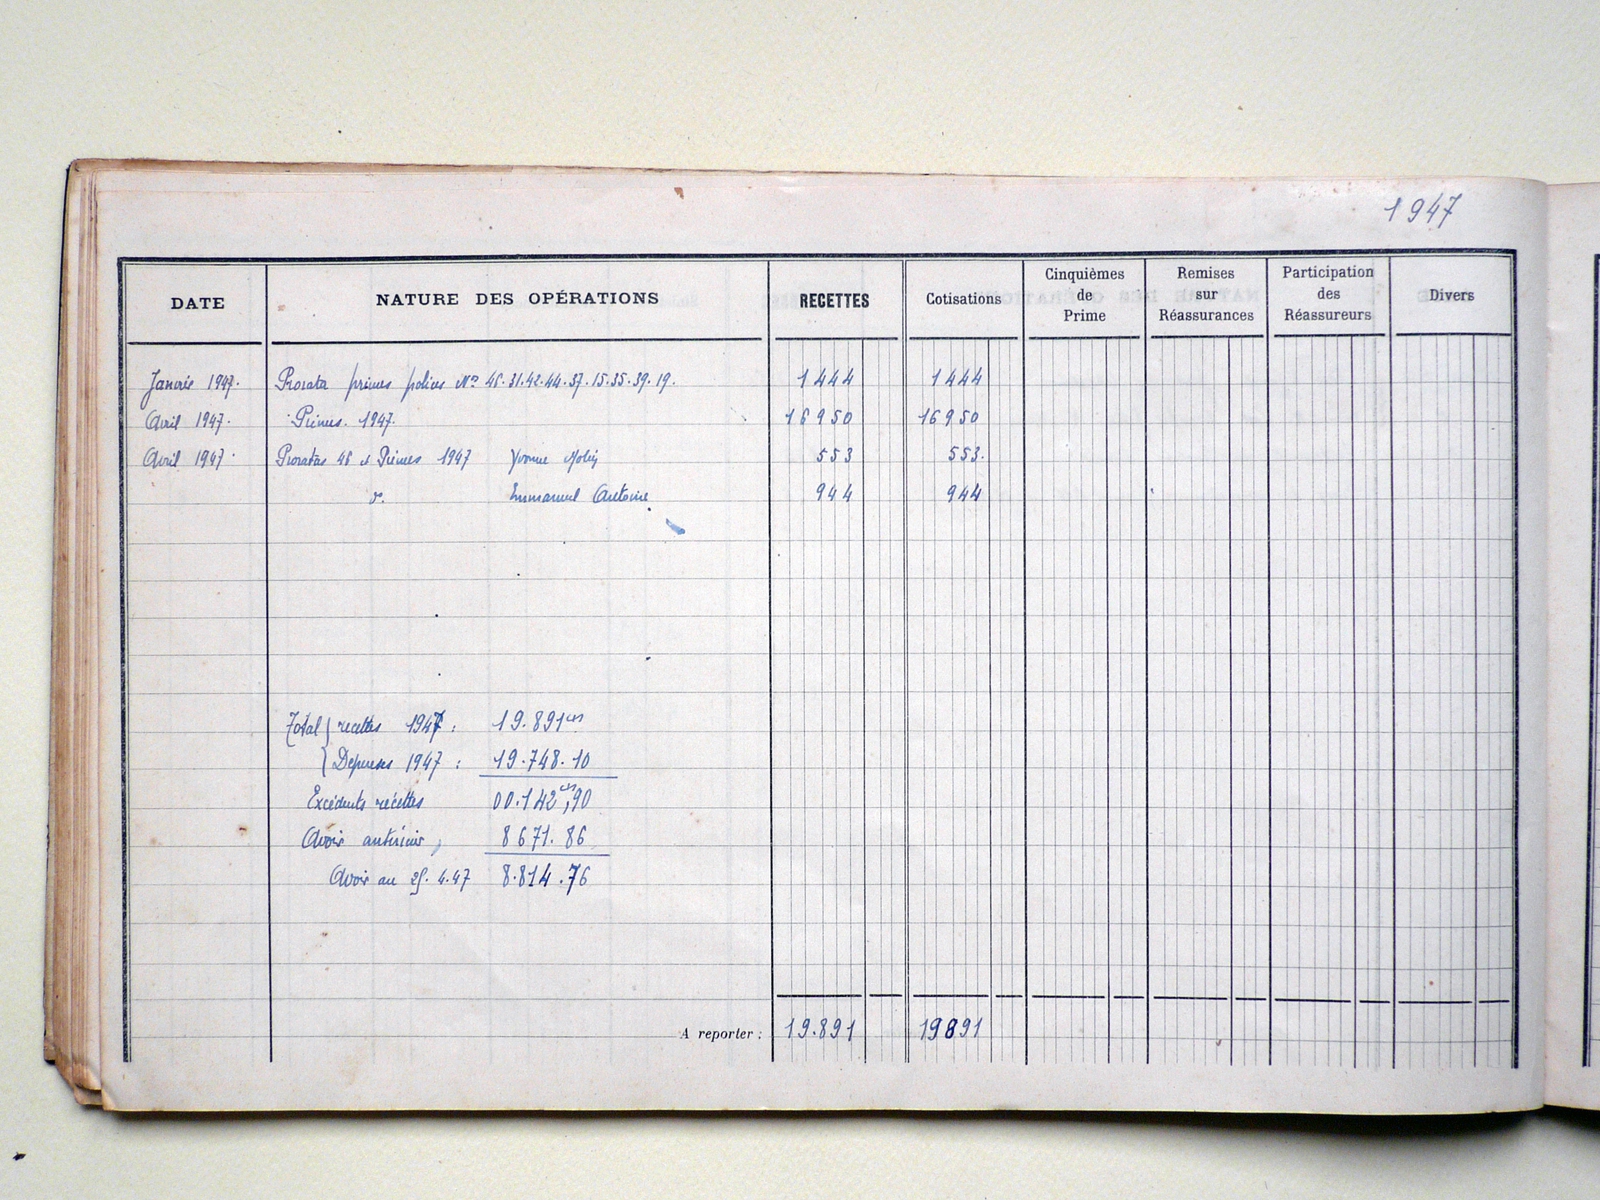 1947
DATE NATURE DES OPÉRATIONS RECETTES Cotisations Cinquièmes de Prime Remises sur Réassurances Participation des Réassureurs Divers
Janvié 1947. Prorata primes polices Nos 46.31.42.44.37.15.35.39.19. 1444 1444
Avril 1947. Primes. 1947. 16950 16950
Avril 1947. Proratas 46 & Primes 1947 Yvonne 553 553.
do. Emmanuel Antoine 944 944
Total { recettes 1947 : 19.891
{ Dépenses 1947 : 19.748.10
Excédents récettes 00.142,90
Avoir antérieur, 8671.86
Avoir au 25.4.47 8.814.76
A reporter : 19.891 19891